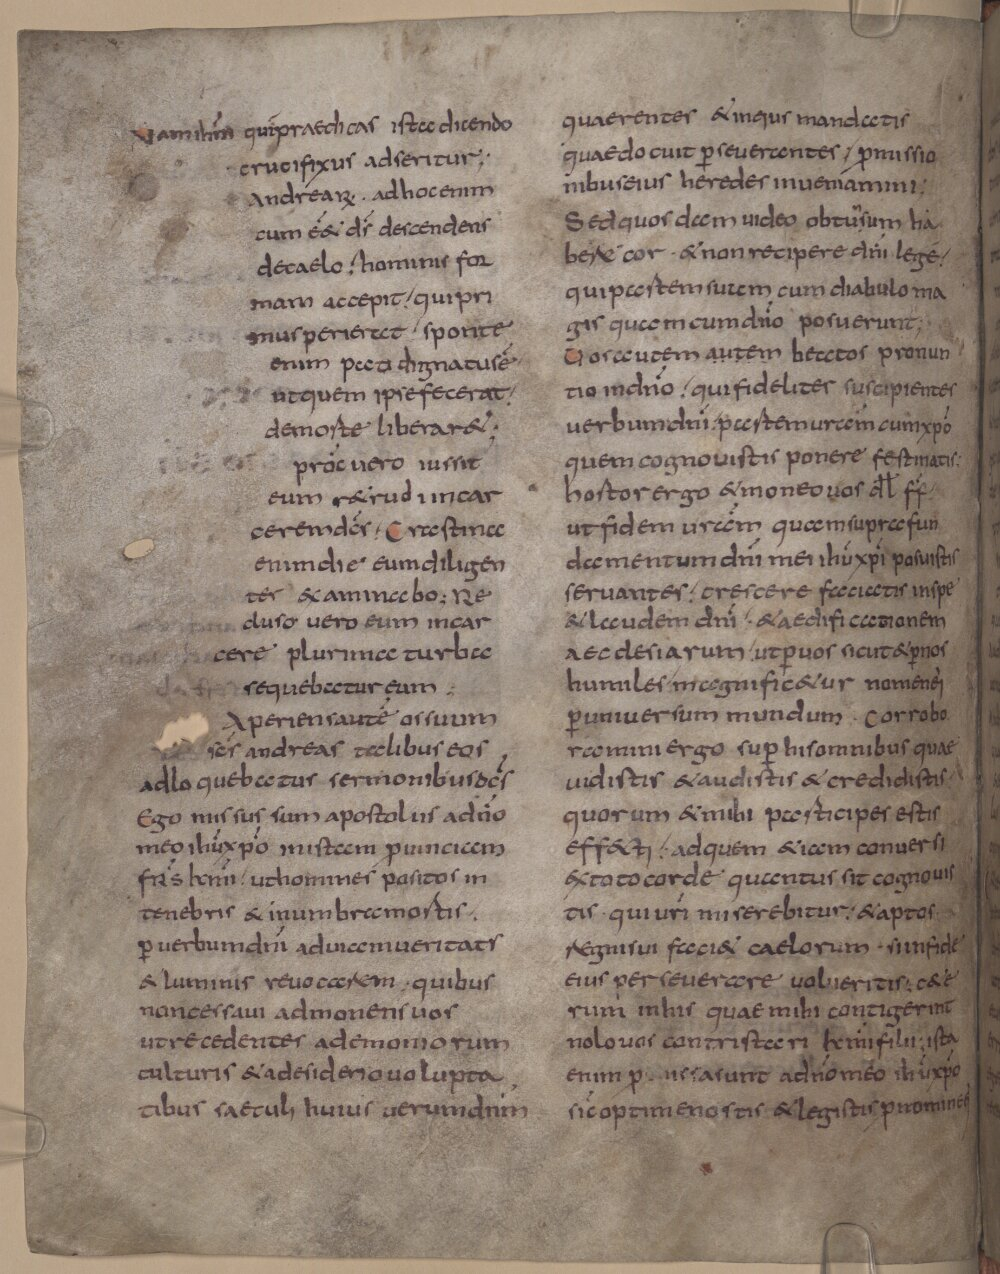 Nam ihm̄ quipraedicas iste dicendo
crucifixus adseritur;
Andreaꝶ. ad hoc enim
cum eē& dī descendens
decaelo / hominis for
mam accepit / qui pri
mus perierat sponte
enim pati dignatus ē
ut quem ipse fecerat /
demorte liberar&;
proc̄ vero iussit
eum r&rudi in car
cerem dc̄s. Crastina
enim die eum diligen
ter examinabo; Re
duso vero eum in car
cere plurima turba
sequebatur eum;
Aperiens autē os suum
sc̄s andreas talibus eos
adloquebatur sermonibus dc̄s
Ego missus sum apostolus a dn̄o
meo ihū xpō in istam puinciam
frs̄ kmī / ut homines positos in
tenebris & in umbra mortis.
p̱ verbum dn̄i ad viam veritatis
& luminis revocarem. quibus
non cessavi admonens vos
ut recedentes a demoniorum
culturis & a desiderio volupta
tibus saeculi huius verum dnm̄
quaerentes & in eius mandatis
quae docuit p̱severantes / p̱missio
nibus eius heredes inveniamini.
Sed quosdam video obtūsum ha
bere cor. & non recipere dn̄i legē /
qui pactem suam cum diabulo ma
gis quam cum dn̄o posuerunt;
Vos autem autem beatos pronun
tio in dn̄o / qui fideliter suscipientes
verbum dn̄i / pactem vram̄ cum xpō
quem cognovistis ponere festinatis.
hostor ergo & moneo vos dll̄ ff̄.
ut fidem vram̄ quam supra fun
damentum dn̄i mei ihū xpī posuistis
servantes / crescere faciatis in spe
& laudem dn̄i. & aedificationem
aecclesiarum / ut p̱ vos sicut & p̱ nos
humiles magnific&ur nomen eī
p̱ universum mundum. Corrobo
ramini ergo sup̱ his omnibus quae
vidistis & audistis & credidistis
quorum & mihi participes estis
effecti / ad quem & iam conversi
ex toto corde quantus sit cognovis
tis. qui vrī miserebitur / & aptos
regni sui faci& caelorum. si in fide
eius perseverare volueritis; c&e
rum in his quae mihi contigerint
nolo vos contristari kmī filii; ista
enim p̱missa sunt a dn̄o meo ihū xpō
sic̄ optime nostis & legistis p̱ro omines